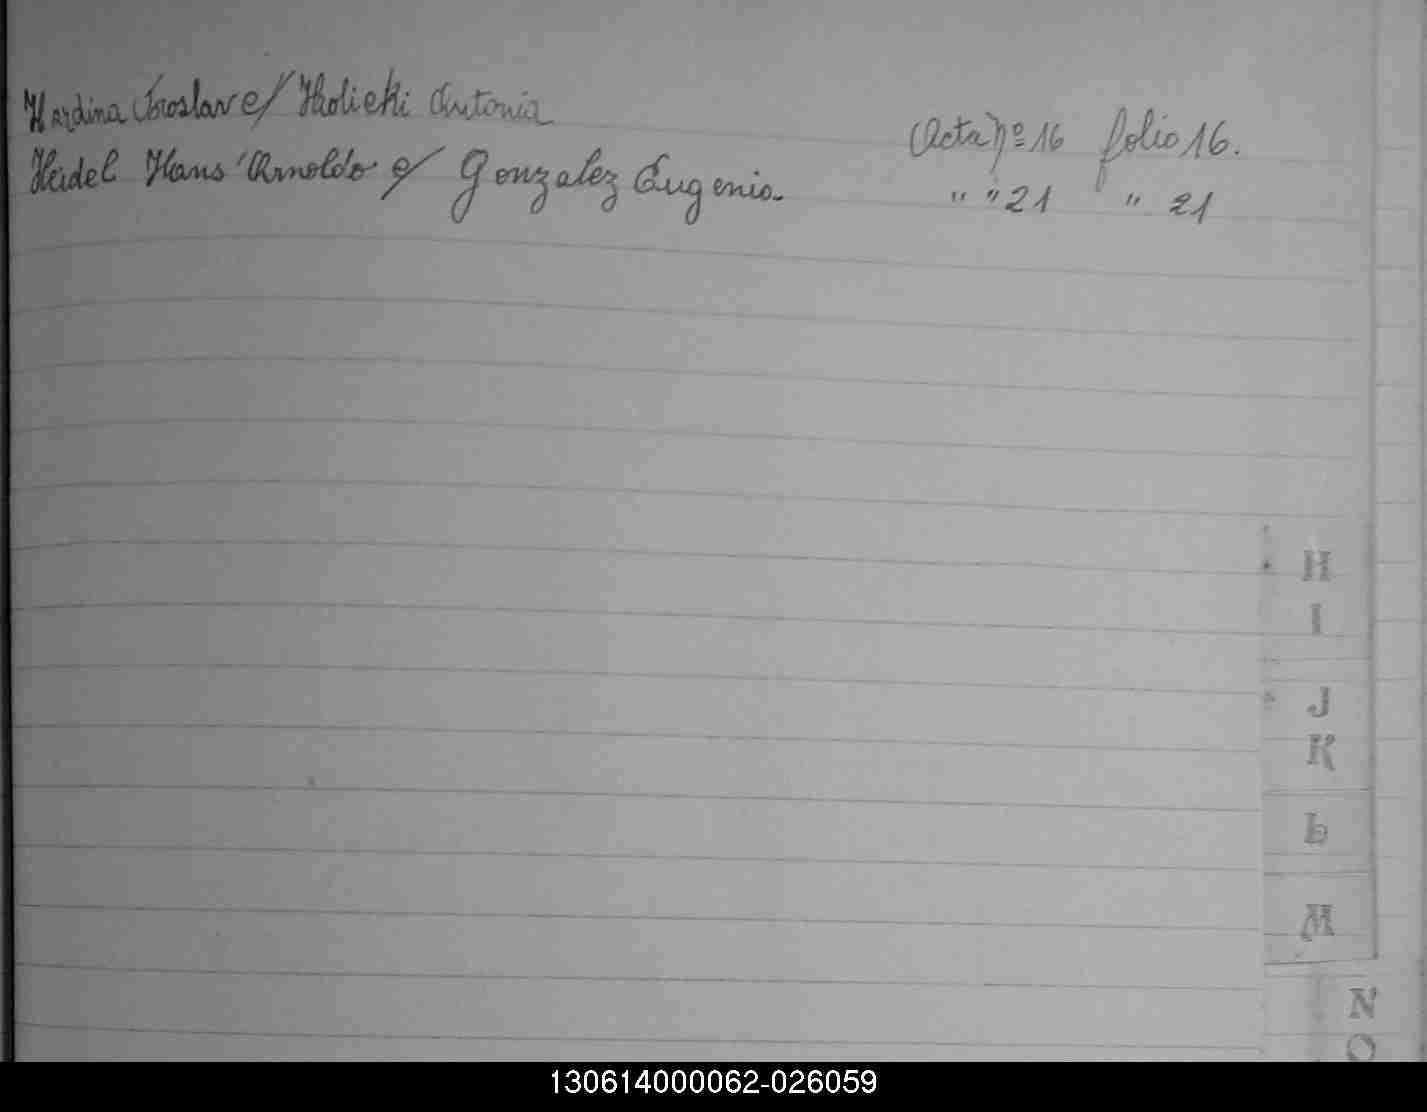 Hardina Joroslav c/ Holicki Antonia Acta Nº 16 folio 16.
Heidel Hans Arnoldo c/ Gonzalez Eugenia. " " 21 " 21
H
I
J
K
L
M
N
O
130614000062-026059